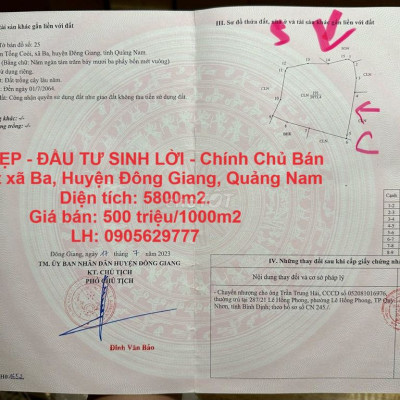 tài sản khác gắn liền với đất
Tờ bản đồ số: 23
n Tống Coói, xã Ba, huyện Đông Giang, tỉnh Quảng Nam
(Bằng chữ: Năm ngàn tám trăm bảy mươi ba phẩy bốn mét vuông)
sử dụng riêng.
t: Đất trồng cây lâu năm.
: Đến ngày 01/7/2064.
t: Công nhận quyền sử dụng đất như giao đất không thu tiền sử dụng đất.
ng khác: -/-
ng trồng: -/-
ẸP - ĐẦU TƯ SINH LỜI - Chính Chủ Bán
t xã Ba, Huyện Đông Giang, Quảng Nam
Diện tích: 5800m2.
Giá bán: 500 triệu/1000m2
LH: 0905629777
Đông Giang, ngày tháng 7 năm 2023
TM. ỦY BAN NHÂN DÂN HUYỆN ĐÔNG GIANG
KT. CHỦ TỊCH
PHÓ CHỦ TỊCH
Đinh Văn Bảo
III. Sơ đồ thửa đất, nhà ở và tài sản khác gắn liền với đất
Cạnh
1-2
IV. Những thay đổi sau khi cấp giấy chứng nhận
Nội dung thay đổi và cơ sở pháp lý
- Chuyển nhượng cho ông Trần Trung Hải, CCCD số 052081016976,
thường trú tại 287/21 Lê Hồng Phong, phường Lê Hồng Phong, TP Quy
Nhơn, tỉnh Bình Định; theo hồ sơ số CN 245/.